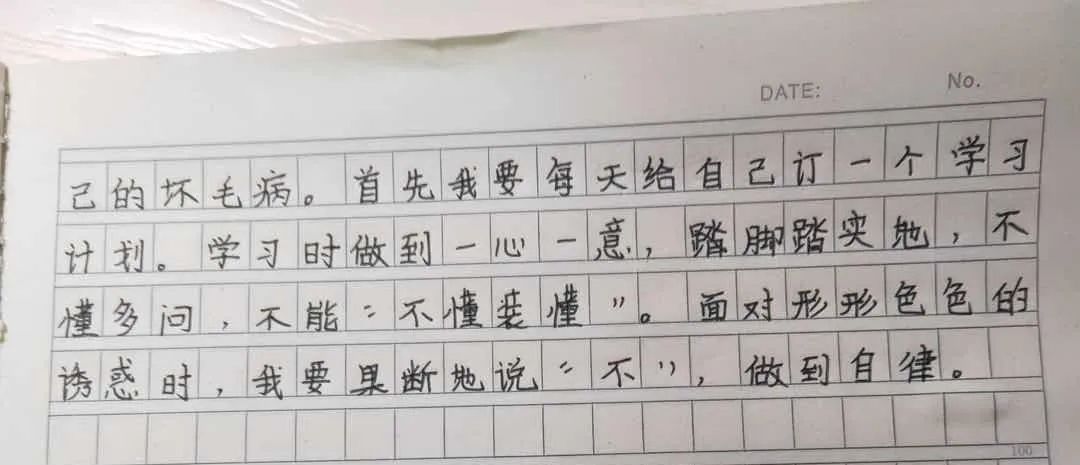 DATE: No.
己的坏毛病。首先我要每天给自己订一个学习
计划。学习时做到一心一意，踏脚踏实地，不
懂多问，不能“不懂装懂”。面对形形色色的
诱惑时，我要果断地说“不”，做到自律。
100